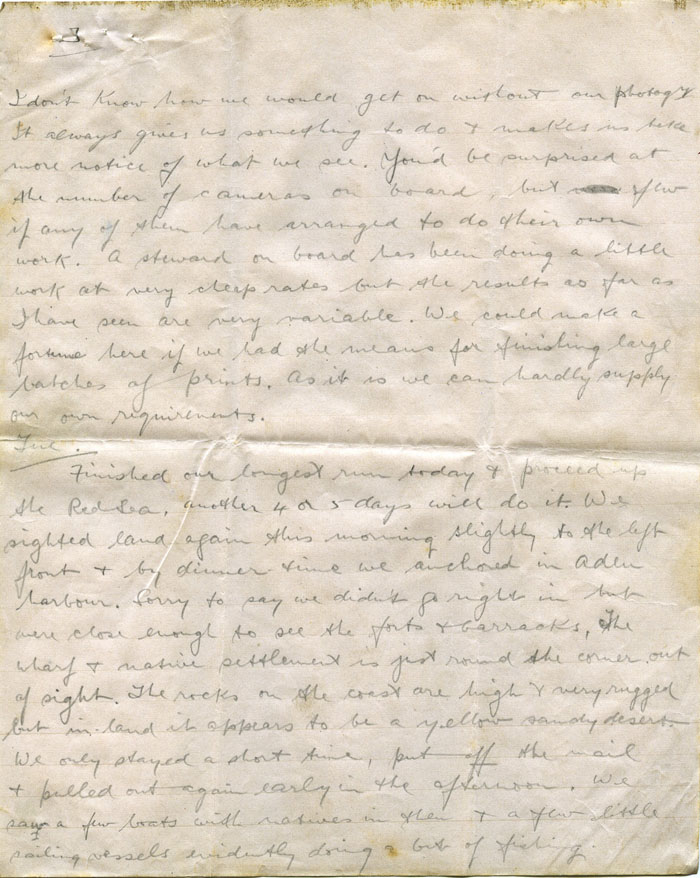 3
I don't know how we would get on without our photogy
It always gives us something to do & makes us take
more notice of what we see. You'd be surprised at
the number of cameras on board, but few
if any of them have arranged to do their own
work. A steward on board has been doing a little
work at very cheep rates but the results so far as
I have seen are very variable. We could make a
fortune here if we had the means for finishing large
batches of prints. As it is we can hardly supply
our own requirements.
Tue.
Finished our longest run today & proceed up
the Red Sea, another 4 or 5 days will do it. We
sighted land again this morning slightly to the left
front & by dinner time we anchored in Aden
harbour. Sorry to say we didn't go right in but
were close enough to see the forts & barracks, The
wharf & native settlement is just round the corner out
of sight. The rocks on the coast are high & very rugged
but in-land it appears to be a yellow sandy desert.
We only stayed a short time, put off the mail
& pulled out again early in the afternoon. We
saw a few boats with natives in them & a few little
sailing vessels evidently doing a bit of fishing.